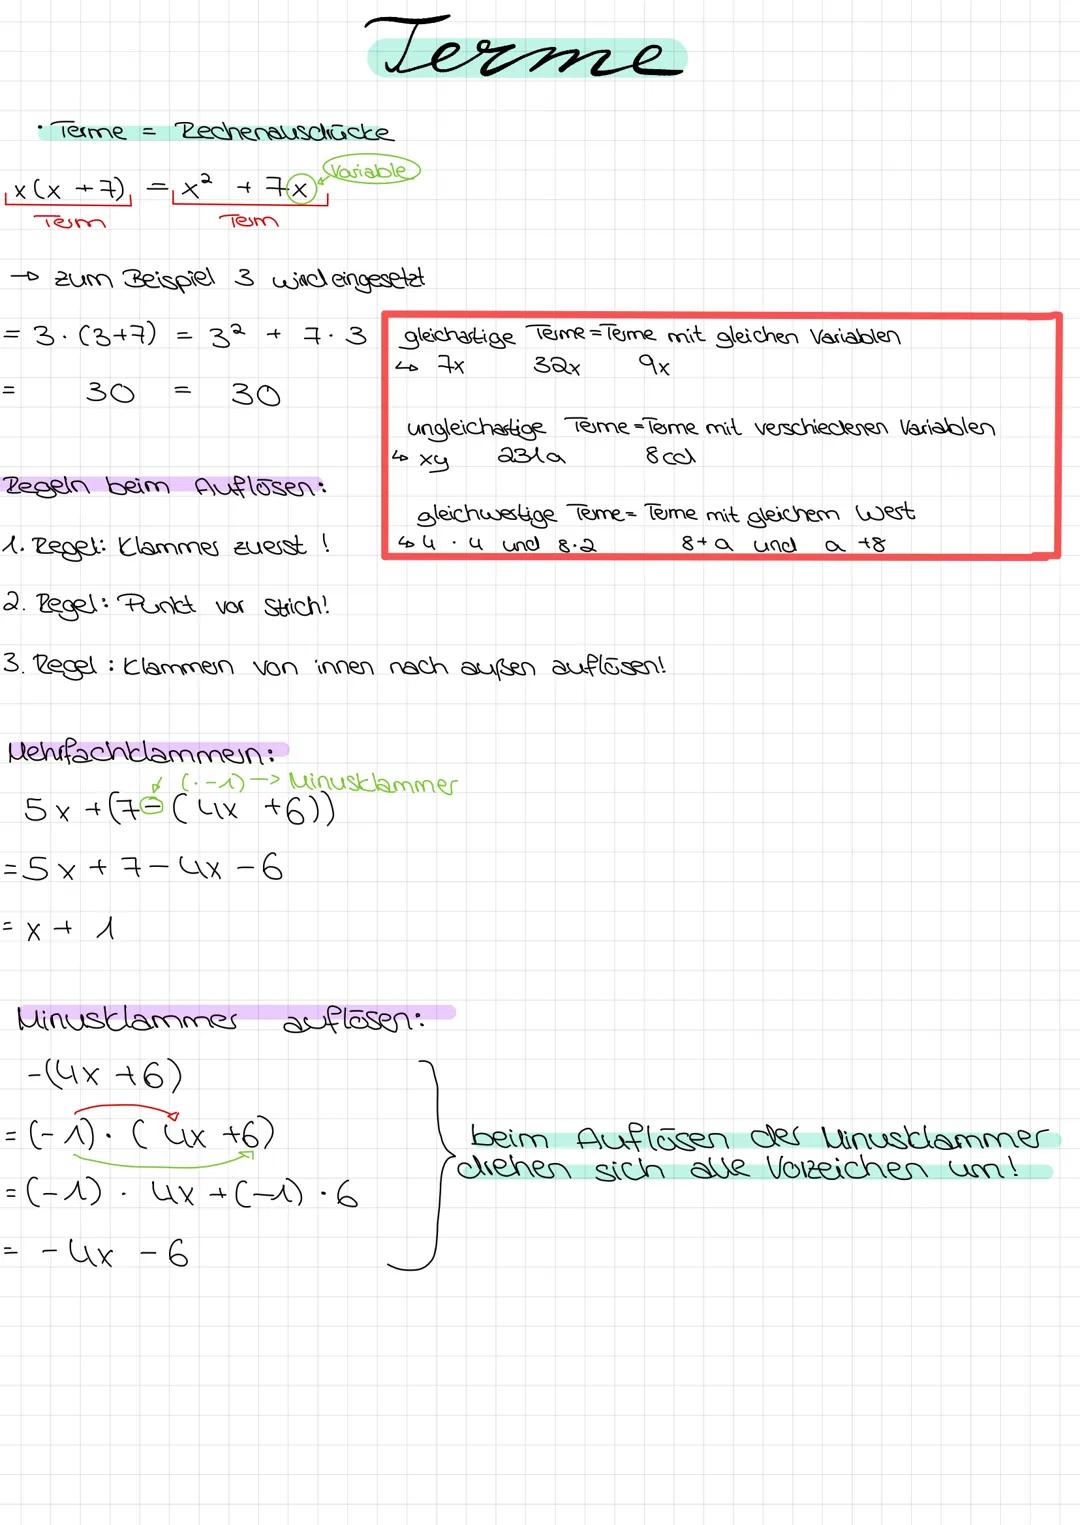 Terme
· Terme = Rechenausdrücke
x(x + 7) = x² + 7x Variable
Term Term
→ zum Beispiel 3 wird eingesetzt
= 3 · (3+7) = 3² + 7 · 3
= 30 = 30
gleichartige Terme = Terme mit gleichen Variablen
↳ 7x 32x 9x
ungleichartige Terme = Terme mit verschiedenen Variablen
↳ xy 231a 8cd
gleichwertige Terme = Terme mit gleichem Wert
↳ 4 · 4 und 8 · 2 8+a und a +8
Regeln beim Auflösen:
1. Regel: Klammer zuerst !
2. Regel: Punkt vor Strich!
3. Regel : Klammern von innen nach außen auflösen!
Mehrfachklammern:
(· -1) -> Minusklammer
5x + (7 - (4x + 6))
= 5x + 7 - 4x - 6
= x + 1
Minusklammer auflösen:
-(4x + 6)
= (-1) · (4x + 6)
= (-1) · 4x + (-1) · 6
= - 4x - 6
beim Auflösen der Minusklammer
drehen sich alle Vorzeichen um!